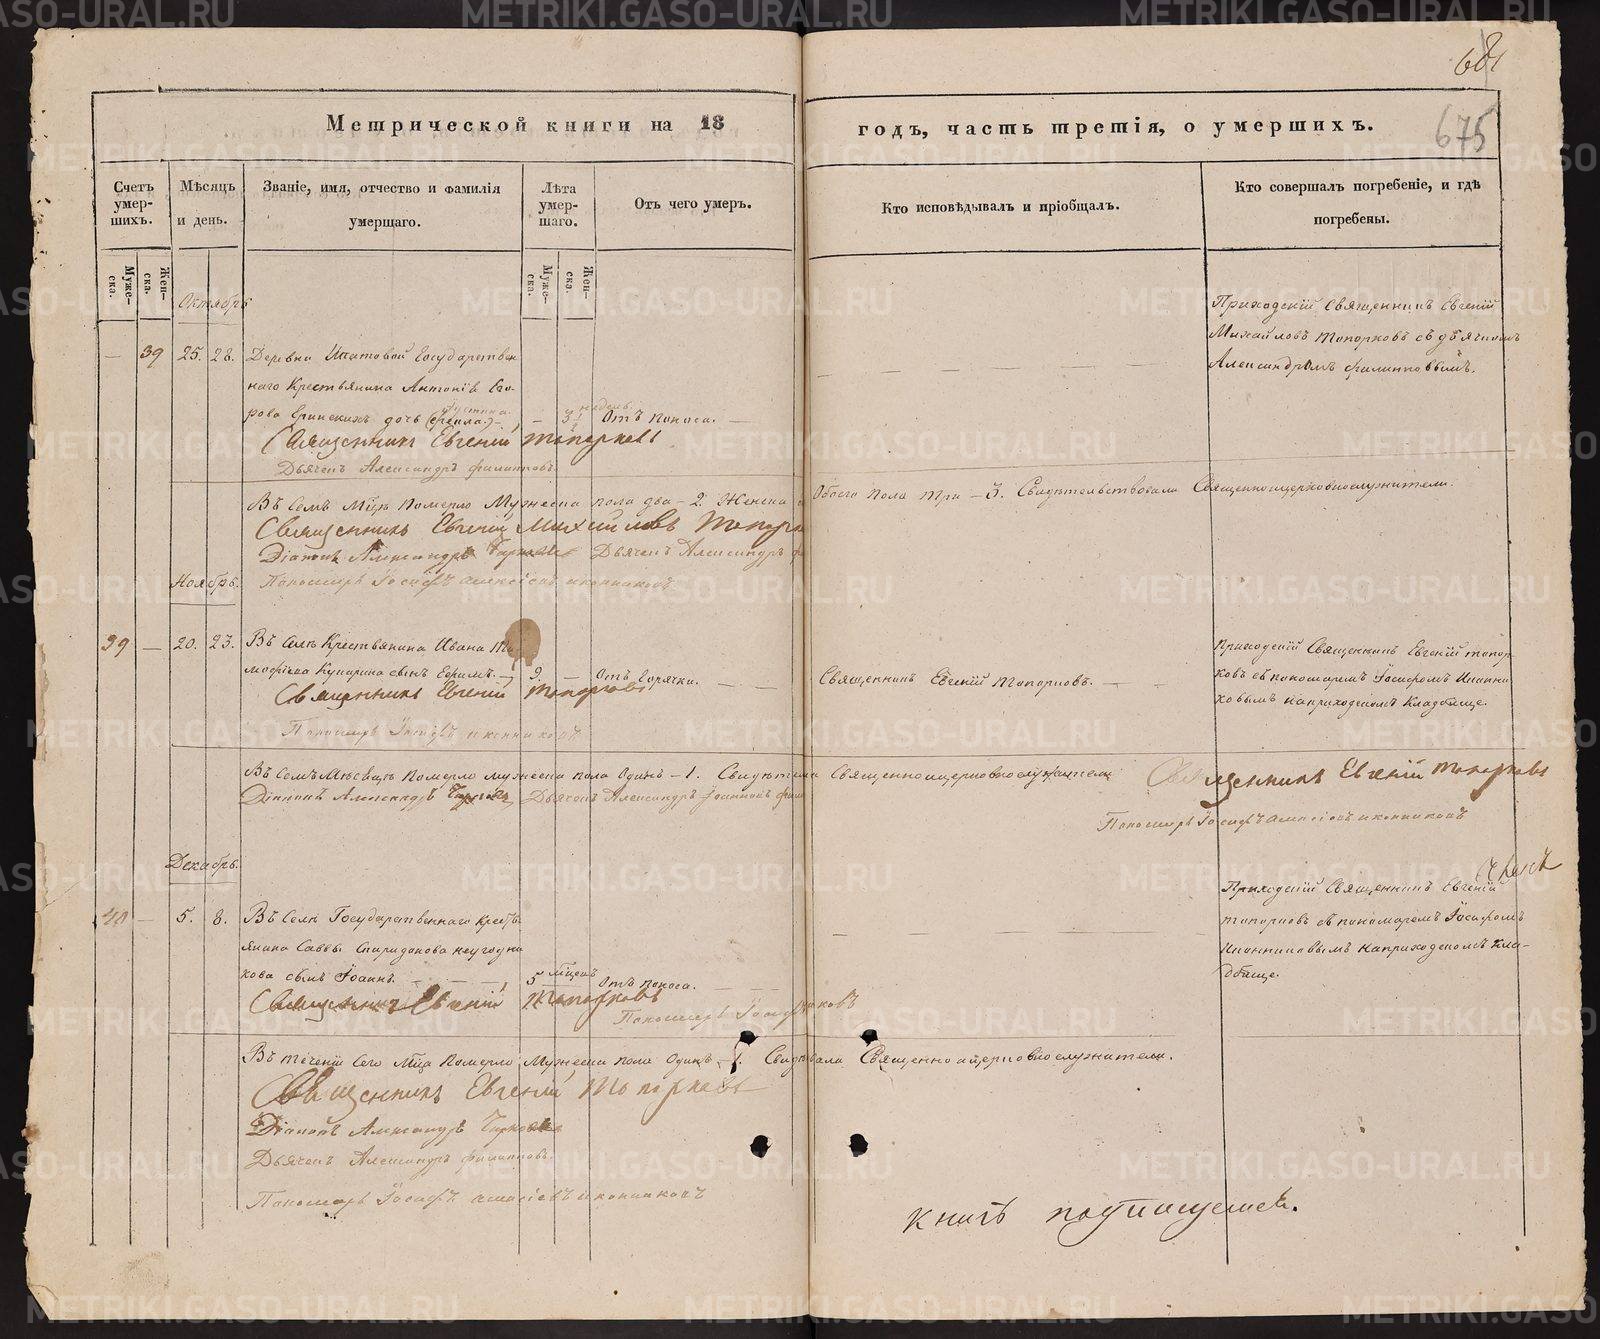 681
675
Метрической книги на 18
годъ, часть третія, о умершихъ.
Счетъ умер-шихъ.
Мѣсяцъ и день.
Званіе, имя, отчество и фамилія умершаго.
Лѣта умер-шаго.
Отъ чего умеръ.
Кто исповѣдывалъ и пріобщалъ.
Кто совершалъ погребеніе, и гдѣ погребены.
Муже-ска.
Жен-ска.
Муже-ска.
Жен-ска.
Октябрь
— 39 25. 28. Деревни Ипатовой Государствен
наго Крестьянина Антонія Его-
рова Еринскихъ дочь
недѣль
— 3 Отъ поноса. —
Священникъ Евгеній Топорковъ
Дьячекъ Александръ Филипповъ
Приходскій Священникъ Евгеній
Михайловъ Топорковъ съ дьячкомъ
Александромъ Филипповымъ.
Въ семъ Мцѣ померло Мужеска пола два – 2. Женска
Обоего пола три – 3. Свидѣтельствовали Священноицерковнослужители.
Священникъ Евгеній Михайловъ Топорк
Діаконъ Александръ
Дьячекъ Александръ
Пономарь Іосифъ Алексіевъ Иконниковъ
Ноябрь.
39 — 20. 23. Въ Селѣ Крестьянина Ивана Ти
мофѣева Купарина сынъ Ефримъ. — 9. — Отъ Горячки. — —
Священникъ Евгеній Топорковъ
Пономарь Іосифъ Иконниковъ
Священникъ Евгеній Топорковъ. — —
Приходскій Священникъ Евгеній Топор
ковъ съ пономаремъ Іосифомъ Иконни
ковымъ на приходскомъ Кладбище.
Въ семъ Мѣсяцѣ померло мужеска пола Одинъ – 1. Свидѣтели Священноицерковнослужители
Священникъ Евгеній Топорковъ
Діаконъ Александръ
Дьячекъ Александръ Іоанновъ
Пономарь Іосифъ Алексіевъ Иконниковъ
Декабрь.
40 — 5. 8. Въ Селѣ Государственнаго Крестъ
янина Саввы Спиридонова Неугодни
кова сынъ Іоаннъ. —
5 мцевъ Отъ поноса. — —
Священникъ Евгеній Топорковъ
Пономарь Іосифъ
Приходскій Священникъ Евгеній
Топорковъ съ пономаремъ Іосифомъ
Иконниковымъ на приходскомъ Кла-
дбище.
Въ теченіи Сего Мца померло Мужеска пола Одинъ – 1. Священноицерковнослужители.
Священникъ Евгеній Топорковъ
Діаконъ Александръ
Дьячекъ Александръ Филипповъ
Пономарь Іосифъ Алексіевъ Иконниковъ
METRIKI.GASO-URAL.RU